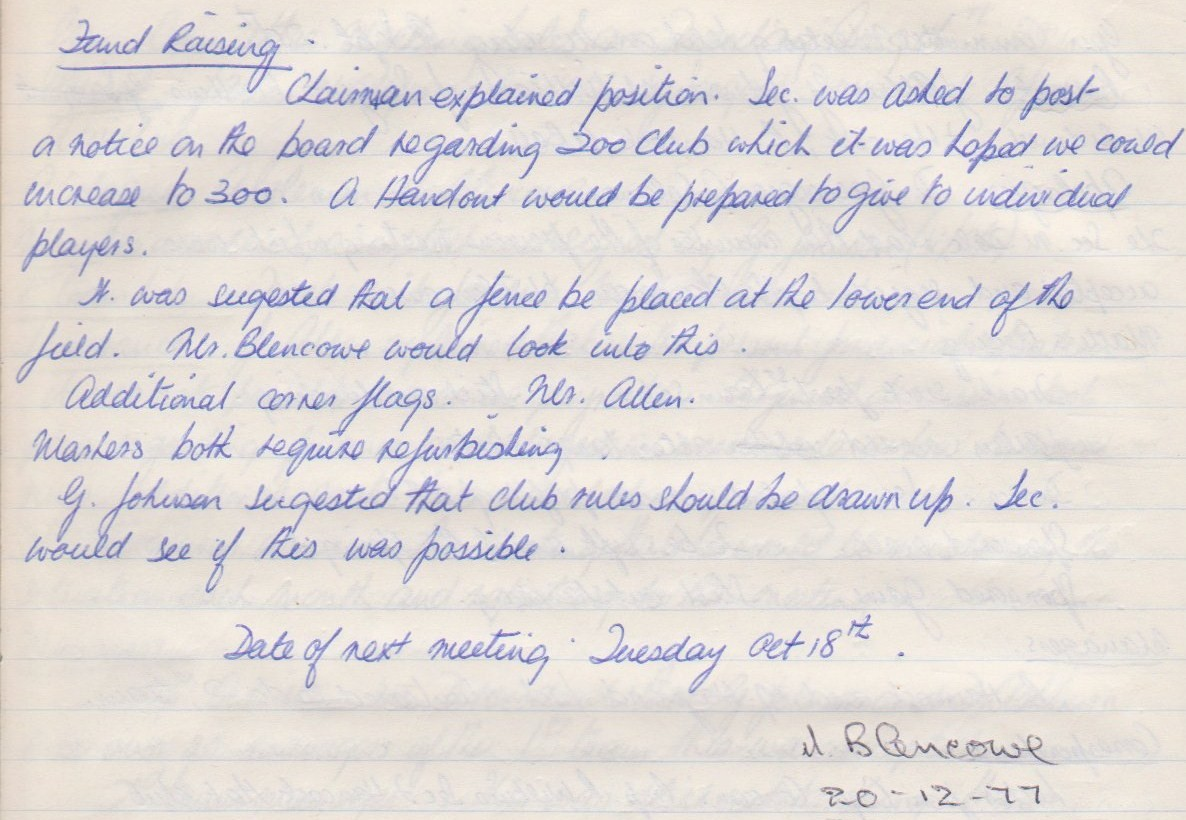 Fund Raising.
Chairman explained position. Sec. was asked to post
a notice on the board regarding 200 Club which it was hoped we could
increase to 300. A Handout would be prepared to give to individual
players.
It was sugested that a fence be placed at the lower end of the
field. Mr. Blencowe would look into this.
Additional corner flags. Mr. Allen.
Markers both require refurbishing.
G. Johnson sugested that club rules should be drawn up. Sec.
would see if this was possible.
Date of next meeting Tuesday Oct 18th.
Blencowe
20-12-77